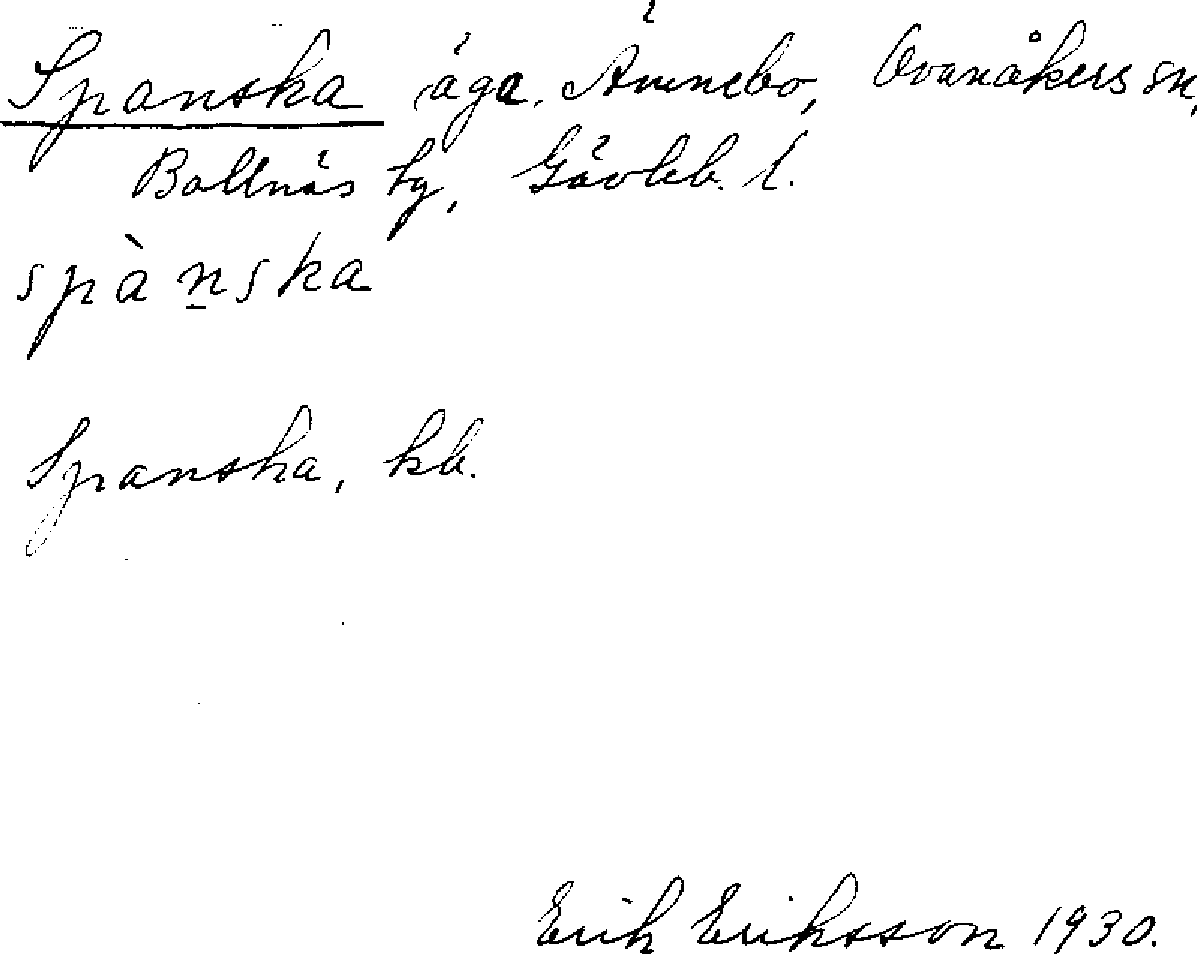 Spanska äga. Ämnebo, Ovanåkers sn,
Bollnäs tg, Gävleb. l.
spàn̠ska
Spanska, kb.
Erik Eriksson 1930.